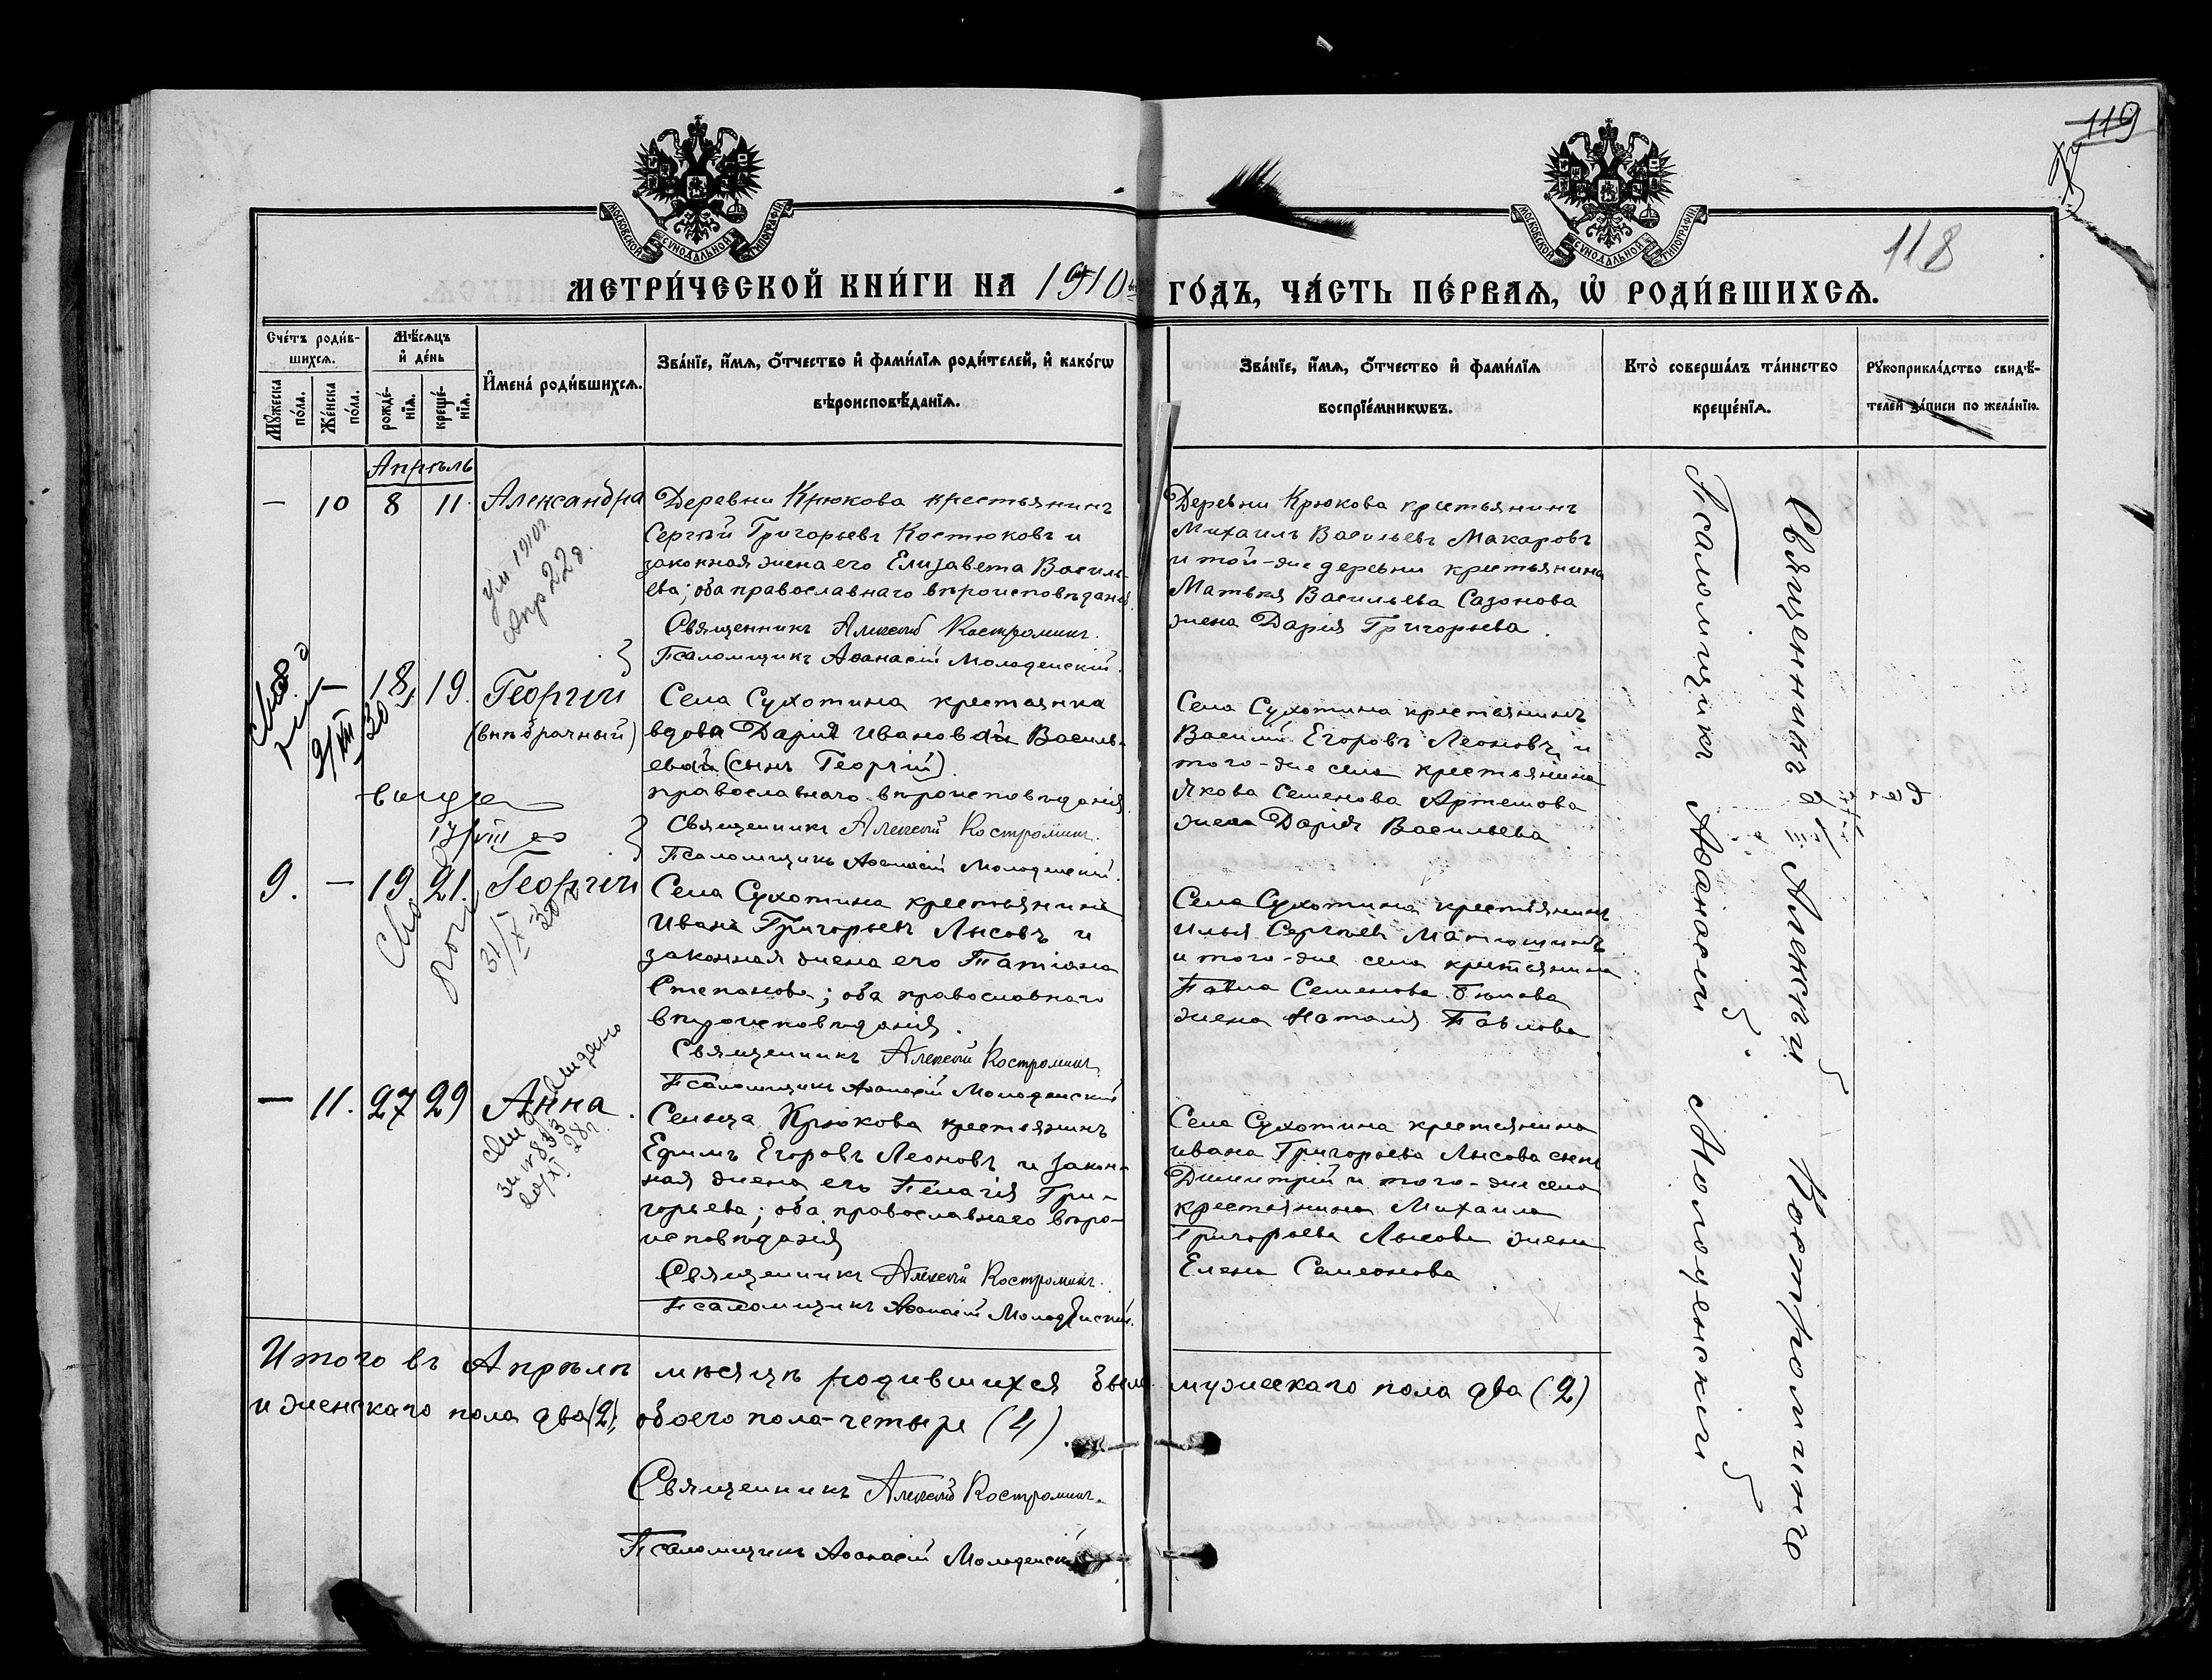 119
118
МОСКОВСКОЙ СѴНОДАЛЬНОЙ ТИПОГРАФІИ.
МОСКОВСКОЙ СѴНОДАЛЬНОЙ ТИПОГРАФІИ.
МЕТРИ́ЧЕСКОЙ КНИ́ГИ НА 1910 ГО́ДЪ, ЧА́СТЬ ПЕ́РВАѦ, Ѡ҆ РОДИ́ВШИХСѦ.
Сче́тъ роди́в-
шихсѧ.
Мꙋ́жеска по́ла.
Же́нска по́ла.
Мѣ́сѧцъ
и҆ де́нь
рожде́-
нїѧ.
креще́-
нїѧ.
И҆мена́ роди́вшихсѧ.
Зва́нїе, и҆́мѧ, ѻ҆́тчество и҆ фами́лїѧ роди́телей, и҆ како́гѡ
вѣроисповѣ́данїѧ.
Зва́нїе, и҆́мѧ, ѻ҆́тчество и҆ фами́лїѧ
воспрїе́мникѡвъ.
Кто̀ соверша́лъ та́инство
креще́нїѧ.
Рꙋкоприкла́дство свидѣ́-
телей за́писи по жела́нїю.
Апрѣль
— 10 8 11 Александра
Ум. 1910г.
Апр 22д.
Деревни Крюкова крестьянинъ
Сергѣй Григорьевъ Костюковъ и
законная жена его Елизавета Василь-
ева; оба православнаго вѣроисповѣданія.
Священникъ Алексѣй Костроминъ.
Псаломщикъ Аѳанасій Молоденскій.
Деревни Крюкова крестьянинъ
Михаилъ Васильевъ Макаровъ
и той-же деревни крестьянина
Матвѣя Васильева Сазонова
жена Дарія Григорьева.
— 18 19. Георгій
(внѣбрачный)
Села Сухотина крестьянка
вдова Дарія Ивановай Василь-
евой (сынъ Георгій).
православнаго вѣроисповѣданія
Священникъ Алексѣй Костроминъ.
Псаломщикъ Аѳанасій Молоденскій.
Села Сухотина крестьянинъ
Василій Егоровъ Леоновъ и
того-же села крестьянина
Якова Семенова Артемова
жена Дарія Васильева
17/VIII
9. — 19 21. Георгій
31/X-30
Села Сухотина крестьянинъ
Иванъ Григорьевъ Лысовъ и
законная жена его Татіана
Степанова; оба православнаго
вѣроисповѣданія.
Священникъ Алексѣй Костроминъ.
Псаломщикъ Аѳанасій Молоденскій
Села Сухотина крестьянинъ
Илья Сергѣевъ Матюшинъ
и того-же села крестьянина
Павла Семенова
жена Наталія Павлова
— 11. 27 29 Анна.
20/XI 28г.
Сельца Крюкова крестьянинъ
Ефимъ Егоровъ Леоновъ и закон-
ная жена его Пелагія Гри-
горьева; оба православнаго вѣро-
исповѣданія
Священникъ Алексѣй Костроминъ.
Псаломщикъ Аѳанасій Молоденскій.
Села Сухотина крестьянина
Ивана Григорьева Лысова сынъ
Димитрій и того-же села
крестьянина Михаила
Григорьева Лысова жена
Елена Семеонова
Священникъ Алексѣй Костроминъ
Псаломщикъ Аѳанасій Молоденскій.
Итого въ Апрѣлѣ мѣсяцѣ родившихся было мужескаго пола два (2)
и женскаго пола два (2), обоего пола-четыре (4).
Священникъ Алексѣй Костроминъ.
Псаломщикъ Аѳанасій Молоденскій